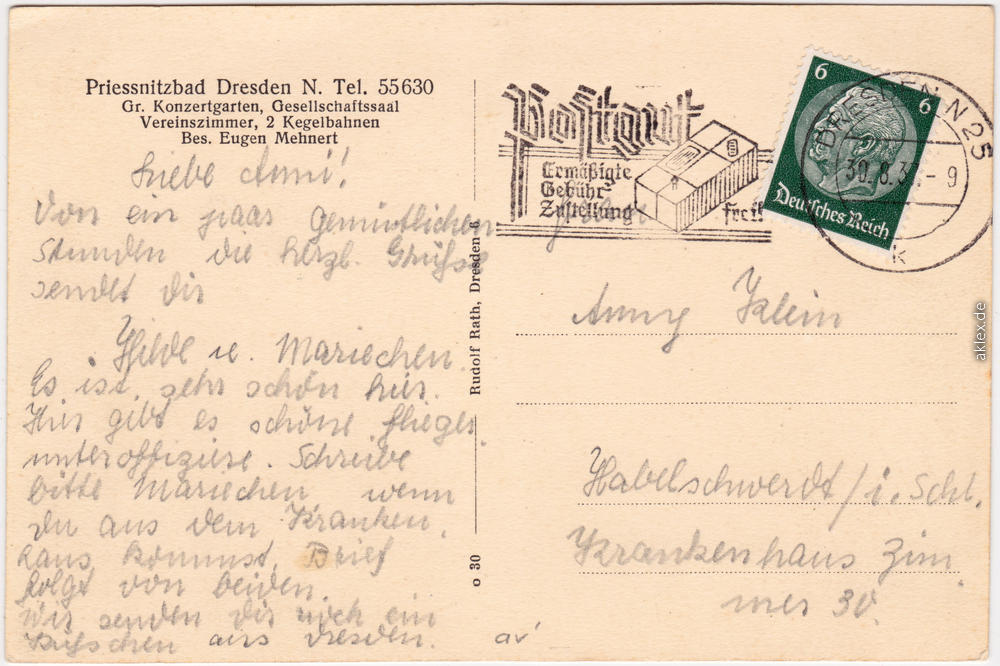 Priessnitzbad Dresden N. Tel. 55630
Gr. Konzertgarten, Gesellschaftssaal
Vereinszimmer, 2 Kegelbahnen
Bes. Eugen Mehnert
Liebe Anni!
Von ein paar Gemütlichen
Stunden die herzl. Grüße
sendet dir
Hilde u. Mariechen.
Es ist sehr schön hier.
Hier gibt es schöne flieger
unteroffiziere. Schreibe
bitte Mariechen wenn
du aus dem Kranken
haus kommst. Brief
folgt von beiden.
Wir senden dir noch ein
Küßchen aus Dresden.
Rudolf Rath, Dresden 6
o 30
Postgut
Ermäßigte
Gebühr
Zustellung frei!
6 6
Deutsches Reich
DRESDEN N 25
30.8.3 -9
k
Anny Klein
Habelschwerdt / i. Schl.
Krankenhaus Zim
mer 30.
aklex.de